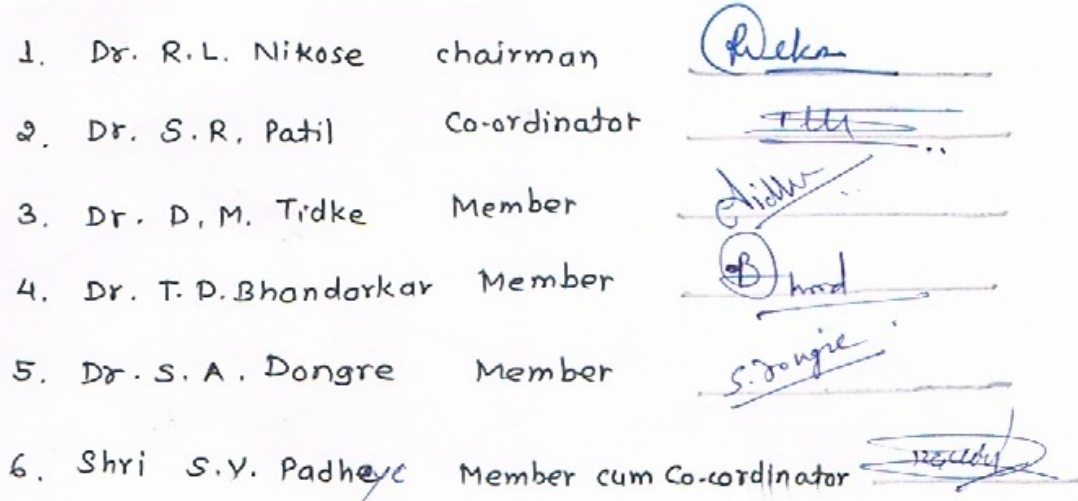 1. Dr. R.L. Nikose chairman
2. Dr. S.R. Patil Co-ordinator
3. Dr. D.M. Tidke Member
4. Dr. T.D. Bhandarkar Member
5. Dr. S.A. Dongre Member S. Dongre
6. Shri S.Y. Padheye Member cum Co-cordinator